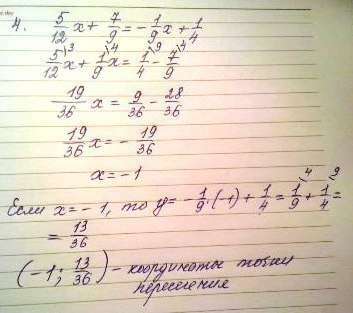 4. 5/12 x + 7/9 = - 1/9 x + 1/4
5/12 \3 x + 1/9 \4 x = 1/4 \9 - 7/9 \4
19/36 x = 9/36 - 28/36
19/36 x = - 19/36
x = -1
Если x = -1, то y = - 1/9 · (-1) + 1/4 = 1/9 \4 + 1/4 \9 =
= 13/36
(-1; 13/36) - координаты точки
пересечения